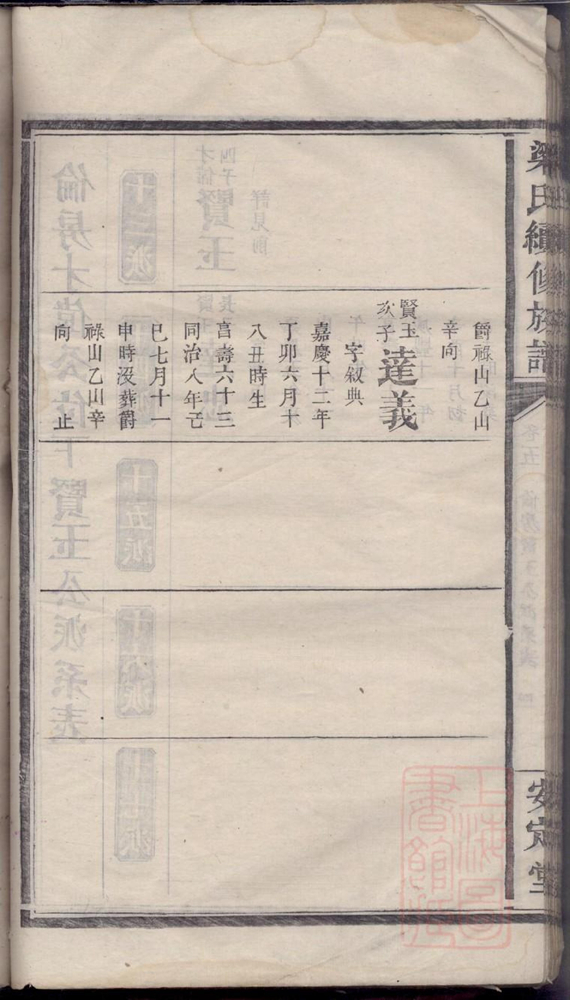 梁氏續修族譜
安定堂
爵祿山乙山
辛向
賢玉
次子
達義
字叙典
嘉慶十二年
丁卯六月十
八丑時生
享壽六十三
同治八年己
巳七月十一
申時没葬爵
祿山乙山辛
向 止
上海圖
書館藏